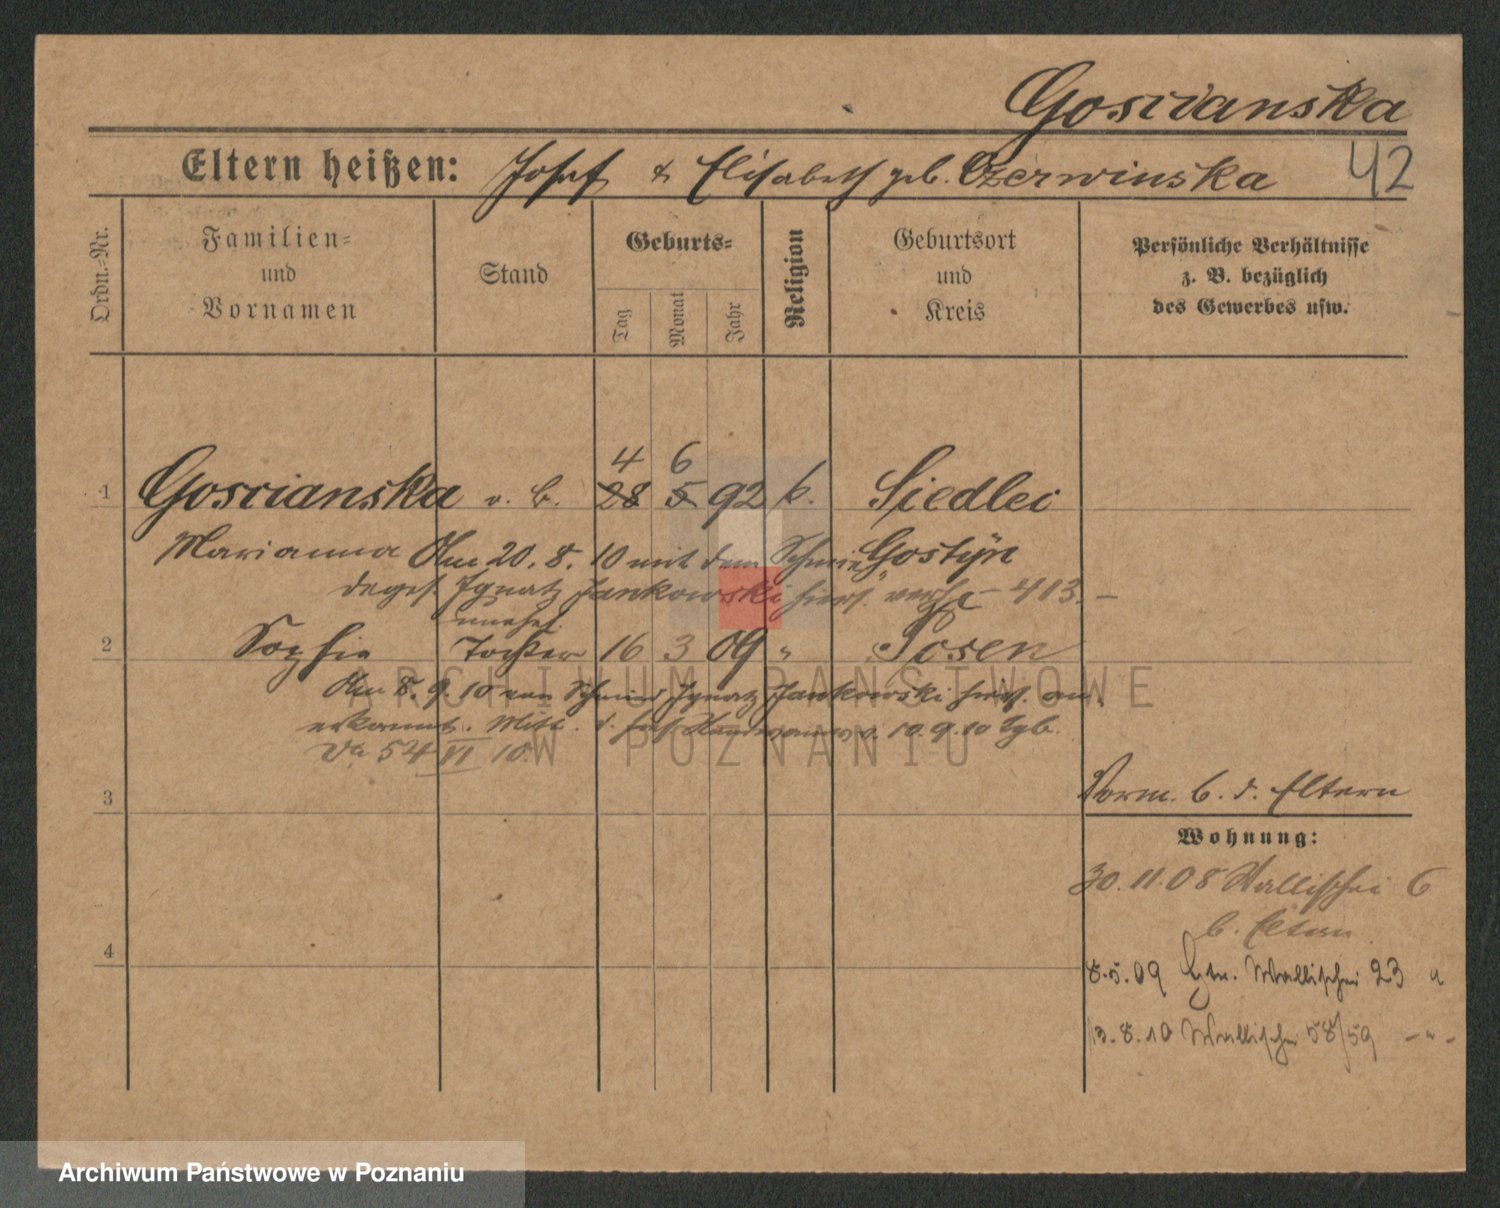 Goscianska
Eltern heißen: Josef & Elisabeth geb. Czerwinska 42
Ordn.-Nr.
Familien-
und
Vornamen
Stand
Geburts-
Tag
Monat
Jahr
Religion
Geburtsort
und
Kreis
Persönliche Verhältnisse
z. B. bezüglich
des Gewerbes usw.
4 6
1 Goscianska v. B. 28 5 92 k. Siedlei
Marianna Am 20. 8. 10 mit dem Schmie- Gostyn
deges. Ignatz Jankowski hiers. verh. - 413. -
unehel.
2 Sophie Tochter 16 3 09 " Posen
Am 8. 9. 10 von Schmied Ignatz Jankowski hiers. an-
erkannt. Mitt. d. v. 10. 9. 10 Tgb.
54 VI 10.
3
Vorm. b. d. Eltern
Wohnung:
30. 11. 08 Wallischei 6
b. Eltern
4
8. 5. 09 Wallischei 23 "
13. 8. 10 Wallischei 58/59 - " -
ARCHIWUM PAŃSTWOWE
W POZNANIU
Archiwum Państwowe w Poznaniu